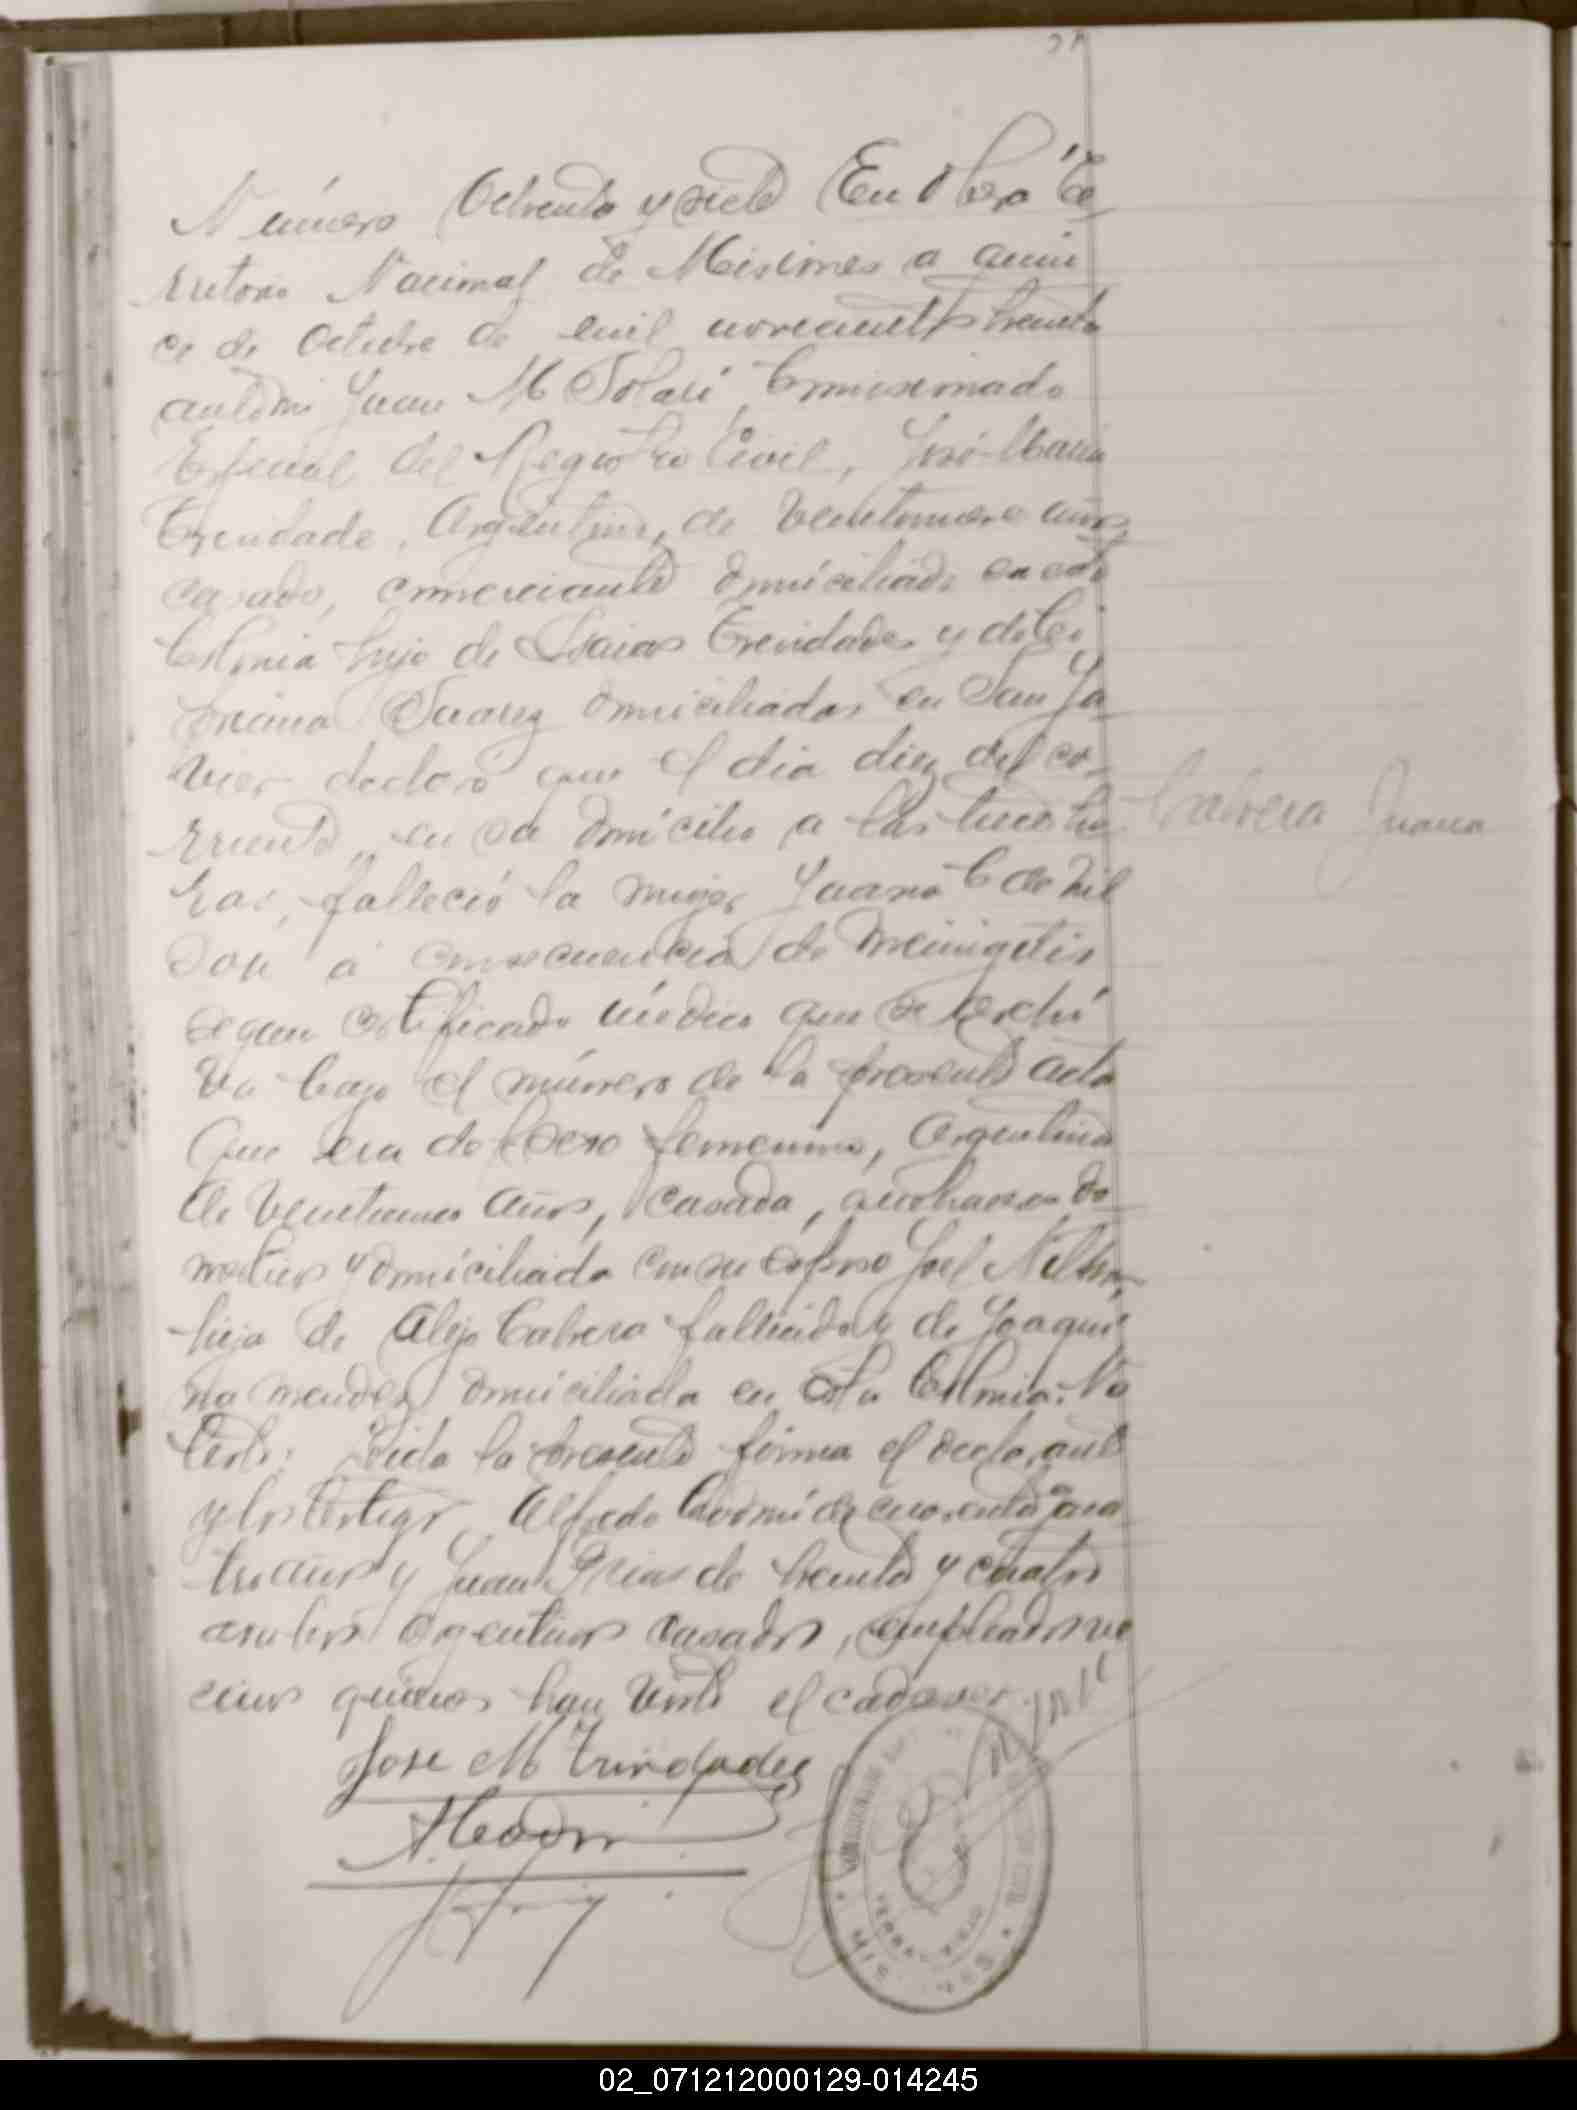 Número Ochenta y siete En Oberá Te
rritorio Nacional de Misiones a quin
ce de Octubre de mil novecientos treinta
ante mi Juan M Solari, Comisionado
Especial del Registro Civil, José María
Trindade, Argentino, de veintinueve años,
casado, comerciante domiciliado en esta
Colonia hijo de Isaias Trindades y de
Suarez domiciliados en San Ja
vier declaró que el dia diez del co-
rriente, en su domicilio a las
ras, falleció la mujer Juana C de Nil
son a consecuencia de meningitis
segun certificado médico que se archi
va bajo el número de la presente acta
Que era de sexo femenino, Argentina
de veintiun años, casada, quehaceres do
mesticos y domiciliada con su esposo Joel Nilson,
hija de Alejo Cabrera fallecido y de Joaqui
na Mendez domiciliada en esta Colonia. No
testo: Leida la presente firma el declarante
y los testigos Alfredo de cuarenta y cua
tro años y Juan de treinta y cuatro
ambos argentinos casados, empleados ve
cinos quienes han visto el cadaver
Cabrera Juana
Jose M Trindades
MISIONES
02_071212000129-014245